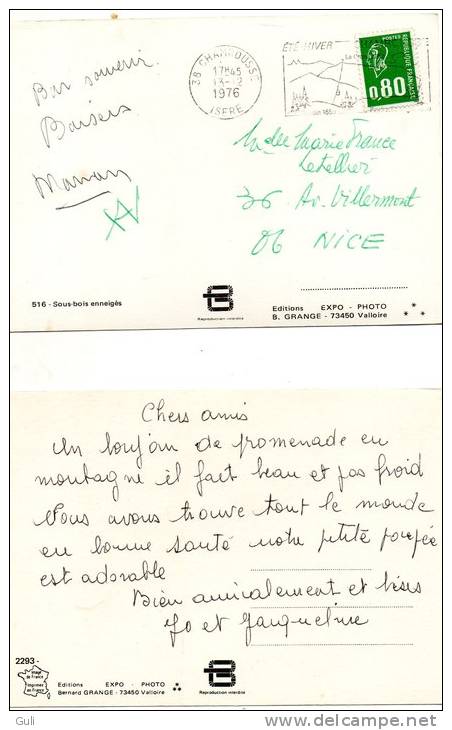 38 CHAMROUSSE
17H45
13-2
1976
ISERE
ÉTÉ HIVER
POSTES
0,80
REPUBLIQUE FRANÇAISE
Bon souvenir
Baisers
Maman
Melle Marie France
Letellier
36 Av. Villermont
06 NICE
516 - Sous-bois enneigés
Reproduction interdite
Editions EXPO - PHOTO
B. GRANGE - 73450 Valloire
Chers amis
Un bonjour de promenade en
montagne il fait beau et pas froid
Nous avons trouve tout le monde
en bonne santé notre petite poupée
est adorable
Bien amicalement et bises
Jo et Jacqueline
2293 -
Image
de France
Imprimée
en France
Editions EXPO - PHOTO
Bernard GRANGE - 73450 Valloire
Reproduction interdite
Guli
http://www.delcampe.net